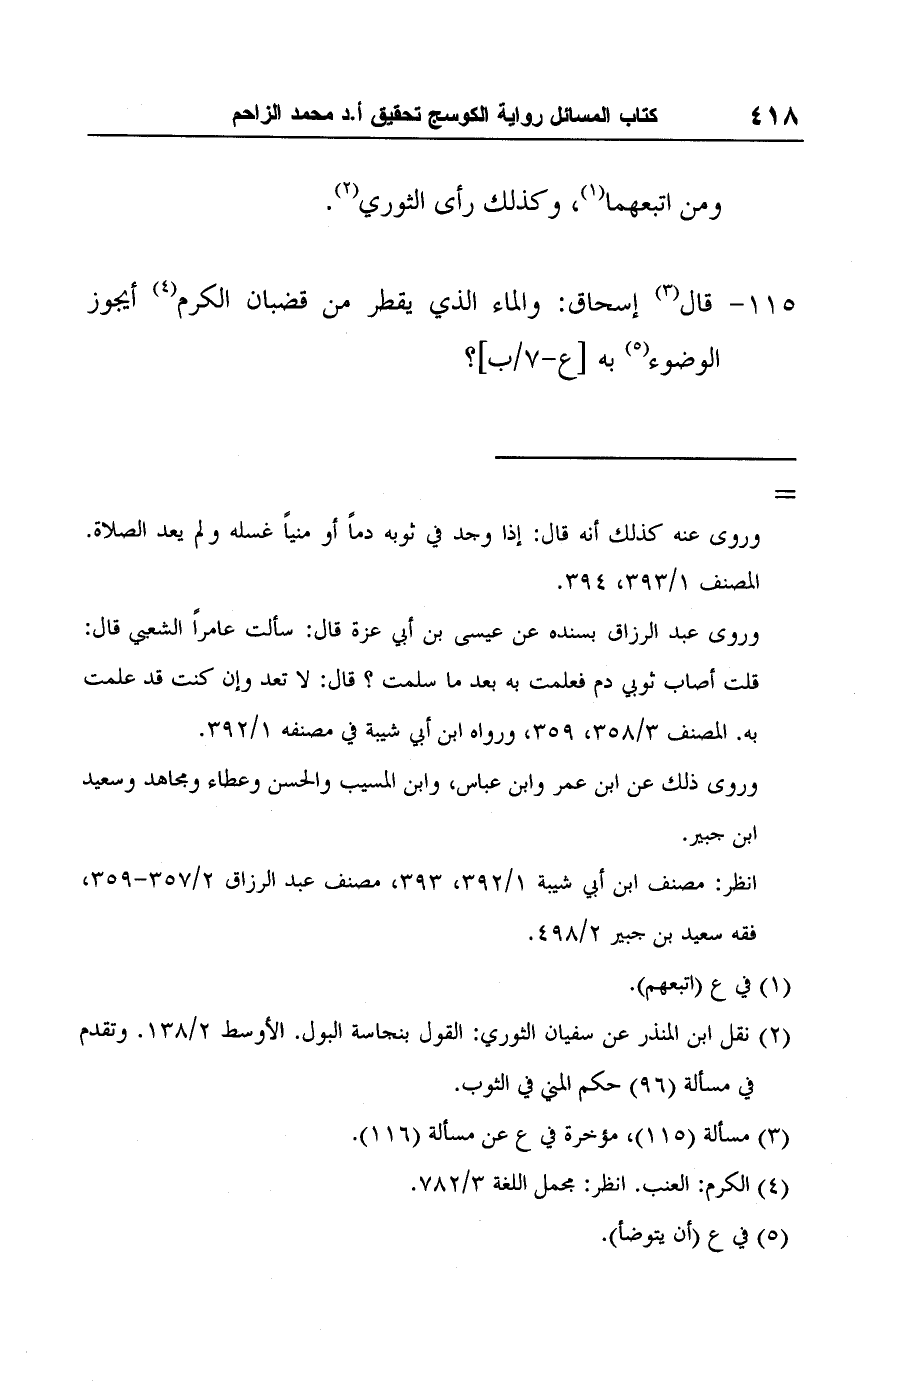 ٤١٨ كتاب المسائل رواية الكوسج تحقيق أ.د محمد الزاحم
ومن اتبعهما(١)، وكذلك رأى الثوري(٢).
١١٥- قال(٣) إسحاق: والماء الذي يقطر من قضبان الكرم(٤) أيجوز
الوضوء(٥) به [ع-٧/ب]؟
=
وروى عنه كذلك أنه قال: إذا وجد في ثوبه دماً أو منياً غسله ولم يعد الصلاة.
المصنف ٣٩٣/١، ٣٩٤.
وروى عبد الرزاق بسنده عن عيسى بن أبي عزة قال: سألت عامراً الشعبي قال:
قلت أصاب ثوبي دم فعلمت به بعد ما سلمت ؟ قال: لا تعد وإن كنت قد علمت
به. المصنف ٣٥٨/٣، ٣٥٩، ورواه ابن أبي شيبة في مصنفه ٣٩٢/١.
وروى ذلك عن ابن عمر وابن عباس، وابن المسيب والحسن وعطاء ومجاهد وسعيد
ابن جبير.
انظر: مصنف ابن أبي شيبة ٣٩٢/١، ٣٩٣، مصنف عبد الرزاق ٣٥٧/٢-٣٥٩،
فقه سعيد بن جبير ٤٩٨/٢.
(١) في ع (اتبعهم).
(٢) نقل ابن المنذر عن سفيان الثوري: القول بنجاسة البول. الأوسط ١٣٨/٢. وتقدم
في مسألة (٩٦) حكم المني في الثوب.
(٣) مسألة (١١٥)، مؤخرة في ع عن مسألة (١١٦).
(٤) الكرم: العنب. انظر: مجمل اللغة ٧٨٢/٣.
(٥) في ع (أن يتوضأ).